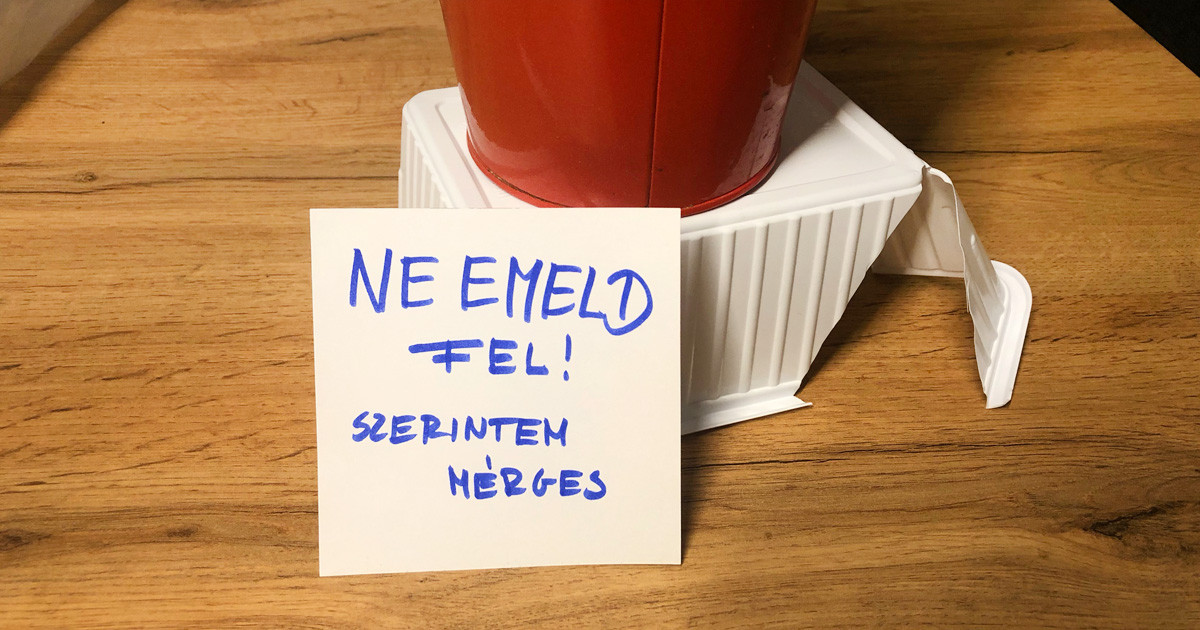 NE EMELD
FEL!
SZERINTEM
MÉRGES